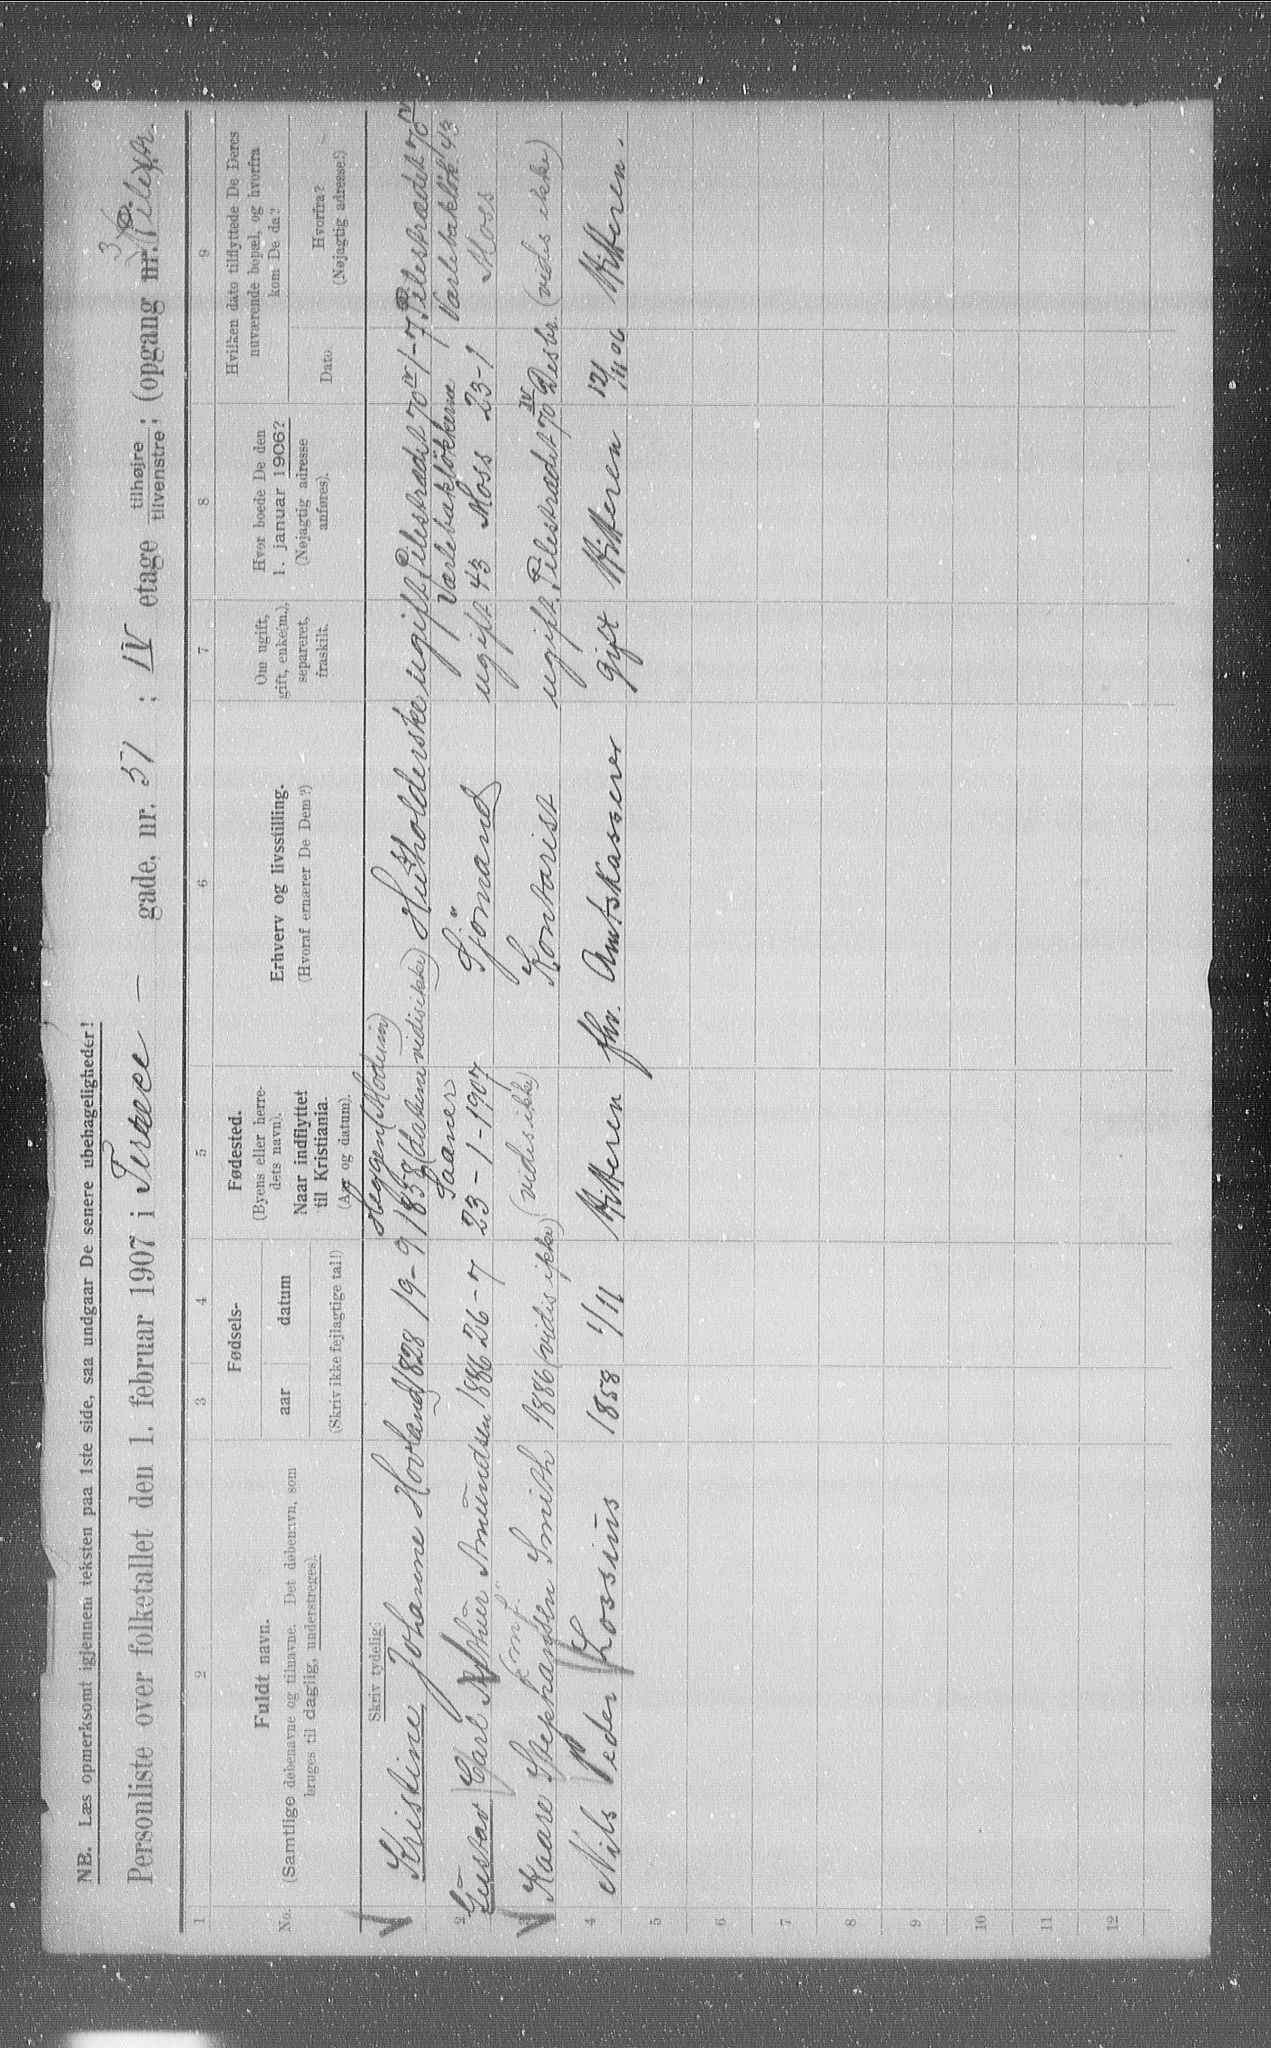 NB. Læs opmerksomt igjennem teksten paa 1ste side, saa undgaar De senere ubehageligheder!
Personliste over folketallet den 1. februar 1907 i Terace — gade, nr. 51 ; IV etage tilhøjre tilvenstre ; (opgang nr.
1 2 3 4 5 6 7 8 9
No.
Fuldt navn.
(Samtlige døbenavne og tilnavne. Det døbenavn, som
bruges til daglig, understreges).
Fødsels-
aar
datum
(Skriv ikke fejlagtige tal!)
Fødested.
(Byens eller herre-
dets navn).
Naar indflyttet
til Kristiania.
(Aar og datum).
Erhverv og livsstilling.
(Hvoraf ernærer De Dem?)
Om ugift,
gift, enke(m.),
separeret,
fraskilt.
Hvor boede De den
1. januar 1906?
(Nøjagtig adresse
anføres).
Hvilken dato tilflyttede De Deres
nuværende bopæl, og hvorfra
kom De da?
Dato.
Hvorfra?
(Nøjagtig adresse!)
Skriv tydelig:
Heggen (Modum)
Kristine Johanne Hovland 1828 19-9 1858 (datum vidis ikke) Husholderske ugift Pilestrædet 70 IV 1-7 Pilestrædet 70 IV
Saaner Varlebakløkkerne Varlebakløk. 43
2 Gustav Carl Arthur Amundsen 1886 26-7 23-1-1907 Sjömand ugift 43 Moss 23-1 Moss
3 Kaare Stephansen Smith 1886 (vidis ikke) (vidis ikke) Kontorist ugift Pilestrædet 70 IV Desbr. (vidis ikke)
4 Nils Peder Lossius 1858 1/11 Hitteren fhv. Amtskasserer gift Hitteren 12/11 06 Hitteren.
5
6
7
8
9
10
11
12